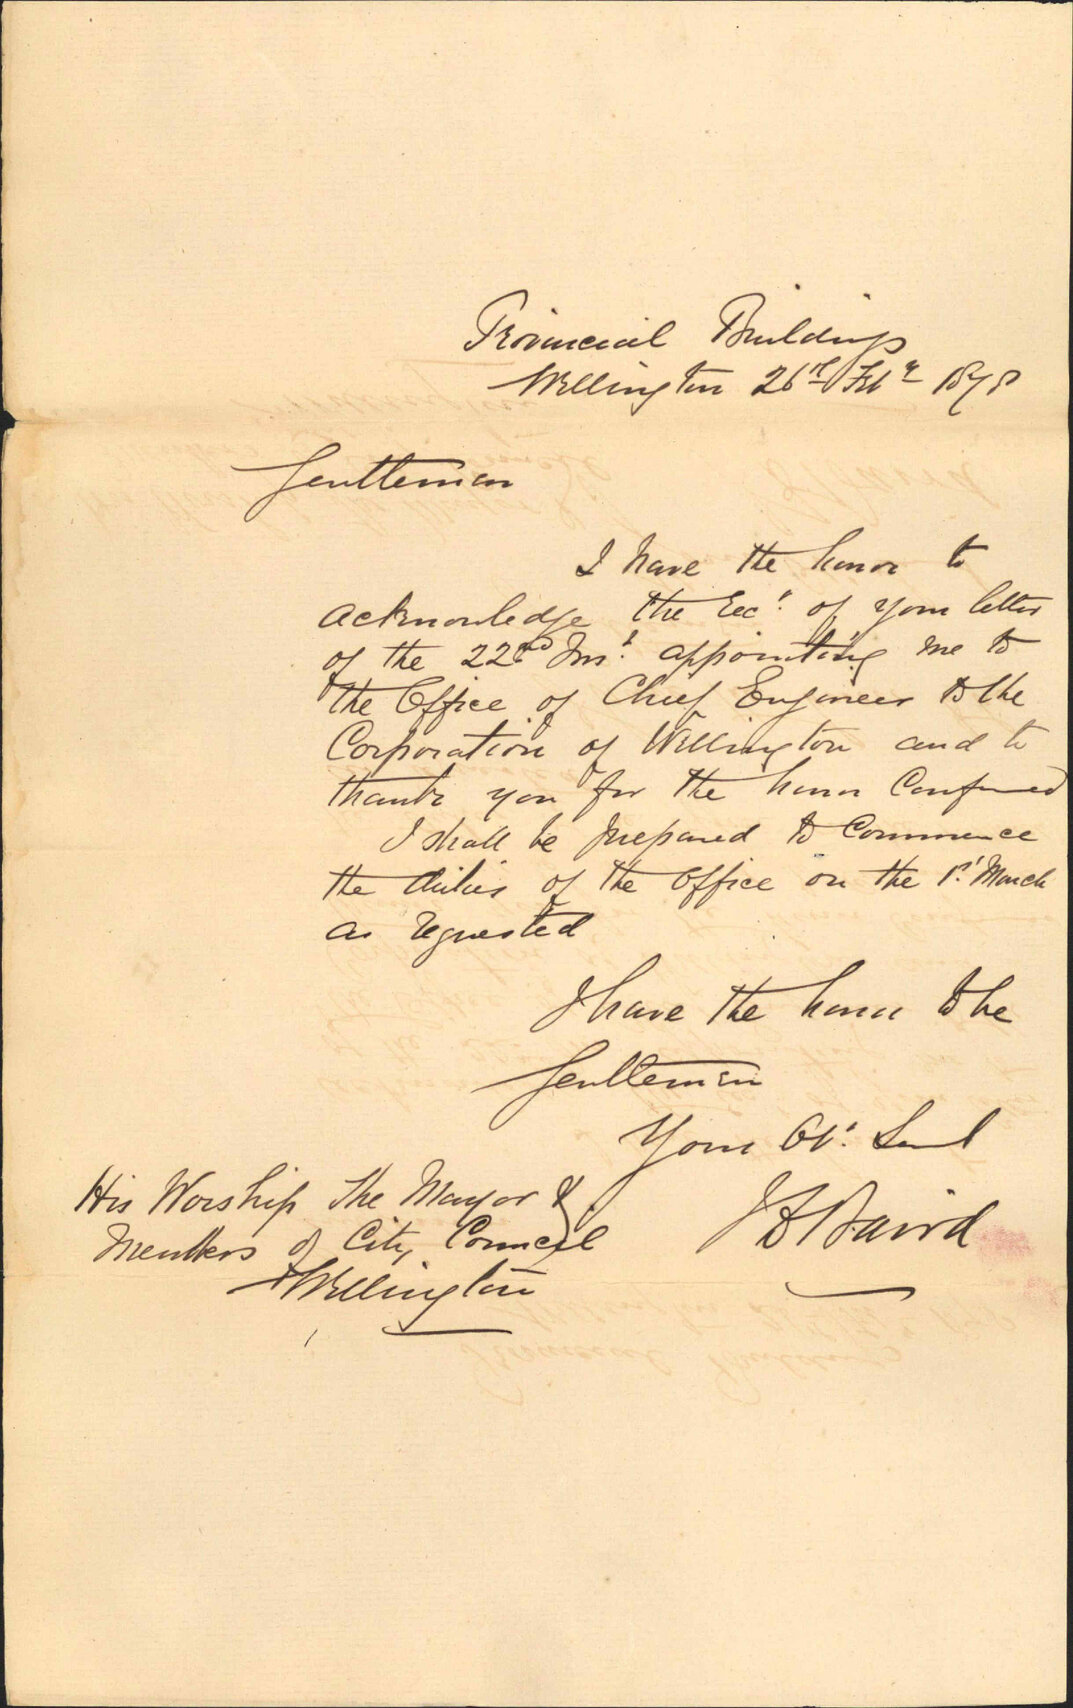 Provincial Buildings
Wellington 26th Feby 1878
Gentlemen
I have the honor to
acknowledge the Rec't of your letter
of the 22nd Ins't appointing me to
the Office of Chief Engineer to the
Corporation of Wellington and to
thank you for the honor Conferred
I shall be prepared to Commence
the duties of the Office on the 1st March
as requested
I have the honor to be
Gentlemen
Your Ob't Servt
J D Baird
His Worship The Mayor &
Members of City Council
Wellington